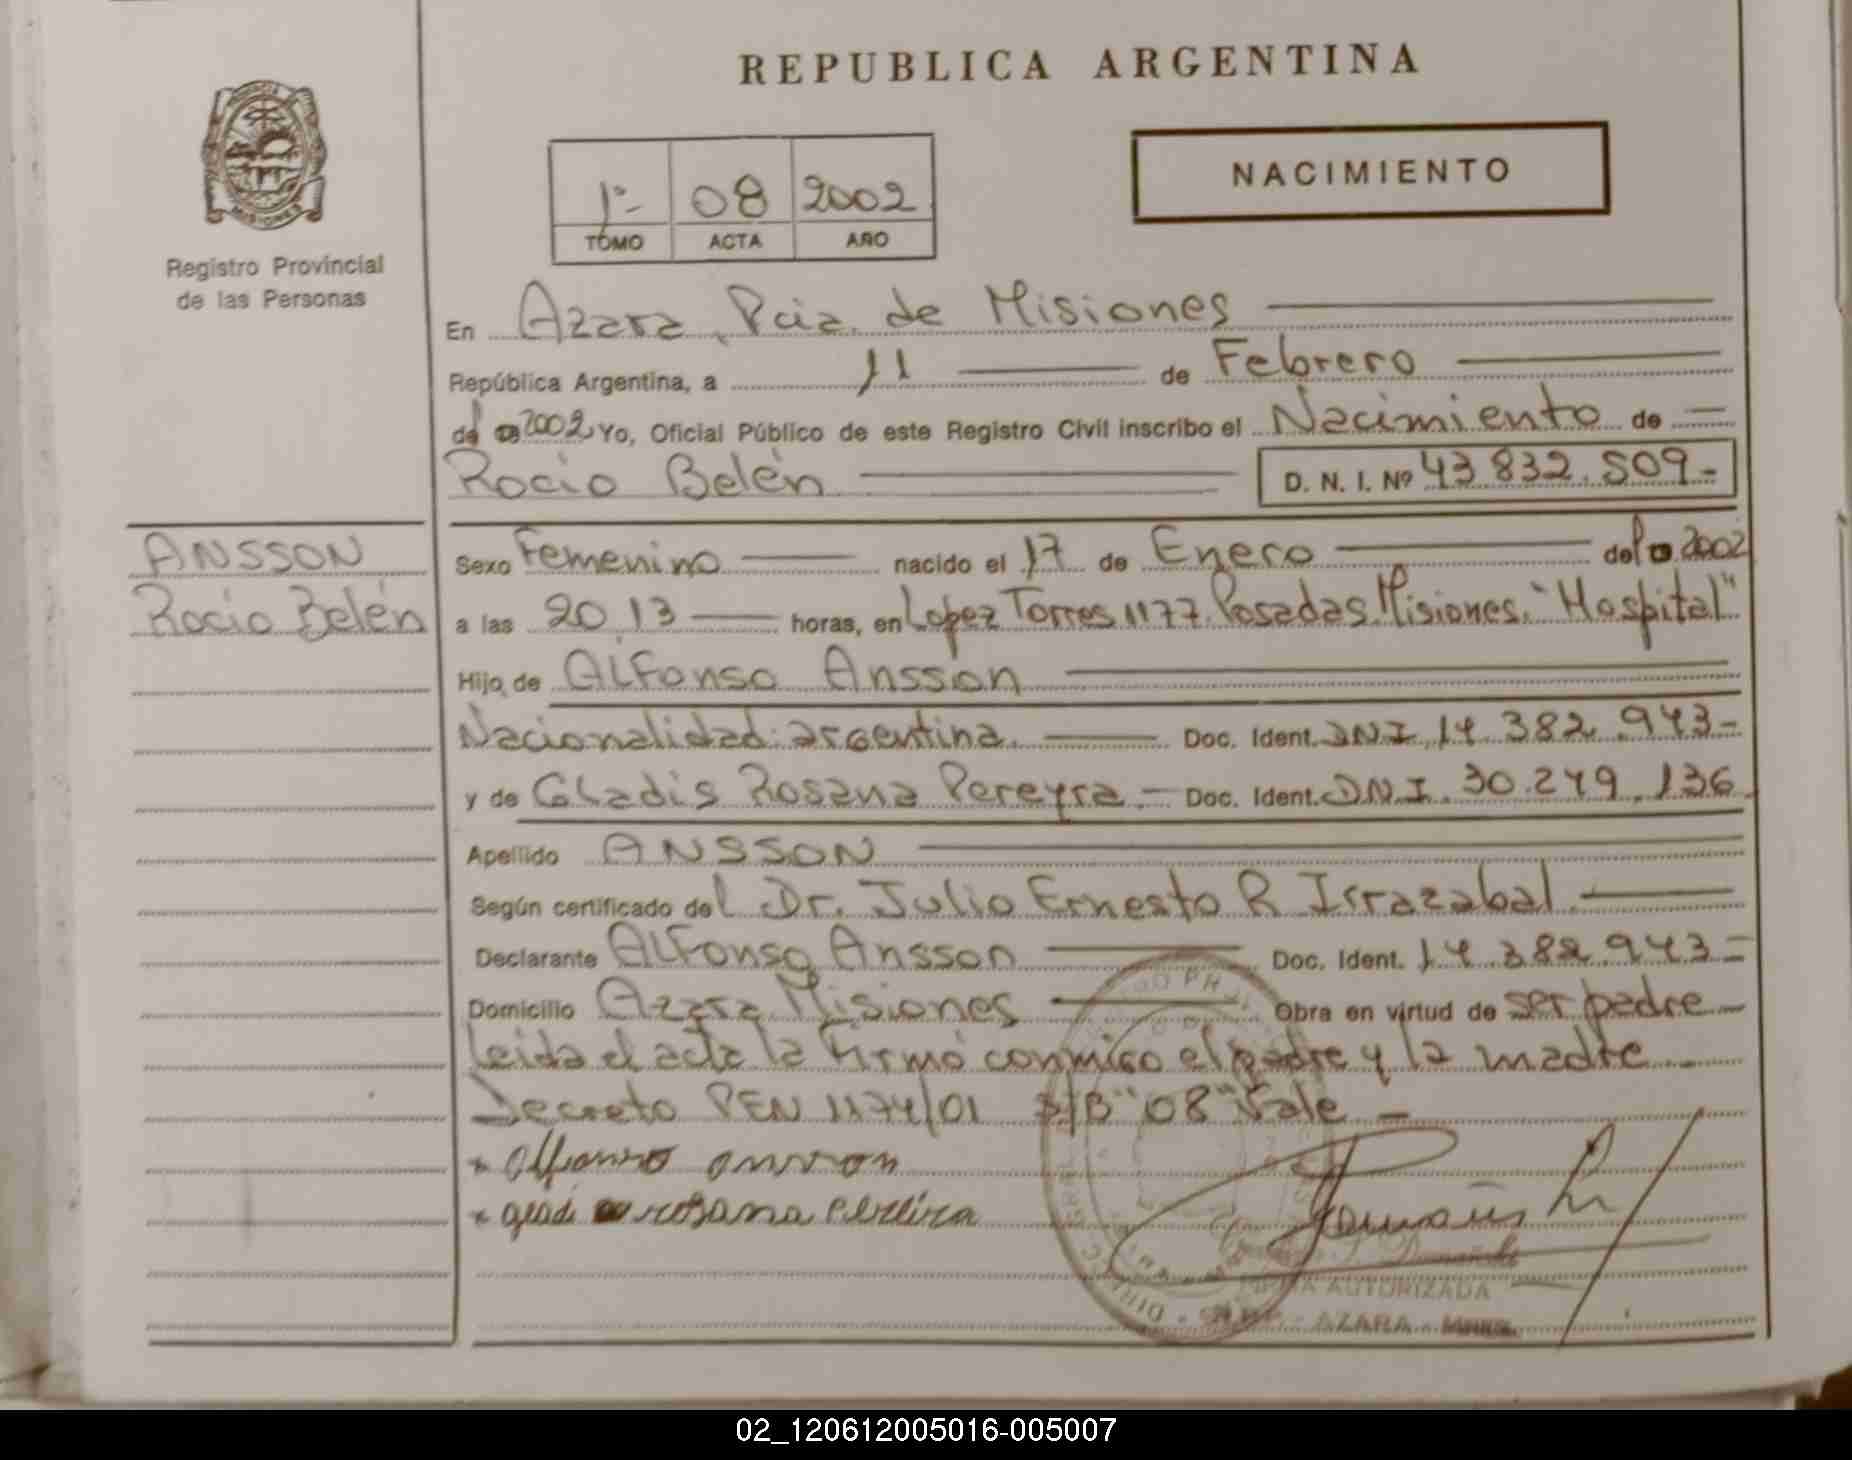 REPUBLICA ARGENTINA
NACIMIENTO
1º 08 2002
TOMO ACTA AÑO
PROVINCIA
MISIONES
Registro Provincial
de las Personas
En Azara, Pcia. de Misiones
República Argentina, a 11 de Febrero
del 2002 Yo, Oficial Público de este Registro Civil inscribo el Nacimiento de
Rocio Belén D. N. I. Nº 43.832.509-
ANSSON
Rocio Belén
Sexo Femenino nacido el 17 de Enero del 2002
a las 20,13 horas, en Lopez Torres 1177. Posadas. Misiones. "Hospital"
Hijo de Alfonso Ansson
Nacionalidad: argentina. Doc. Ident. DNI 14.382.943-
y de Gladis Rosana Pereyra.- Doc. Ident. DNI. 30.249.136
Apellido ANSSON
Según certificado del Dr. Julio Ernesto R Irrazabal
Declarante Alfonso Ansson Doc. Ident. 14.382.943-
Domicilio Azara Misiones Obra en virtud de ser padre-
Leida el acta la firmó conmigo el padre y la madre
Decreto PEN 1174/01 S/B "08" Vale -
Alfonso Ansson
rosana Pereira
AUTORIZADA
AZARA
02_120612005016-005007